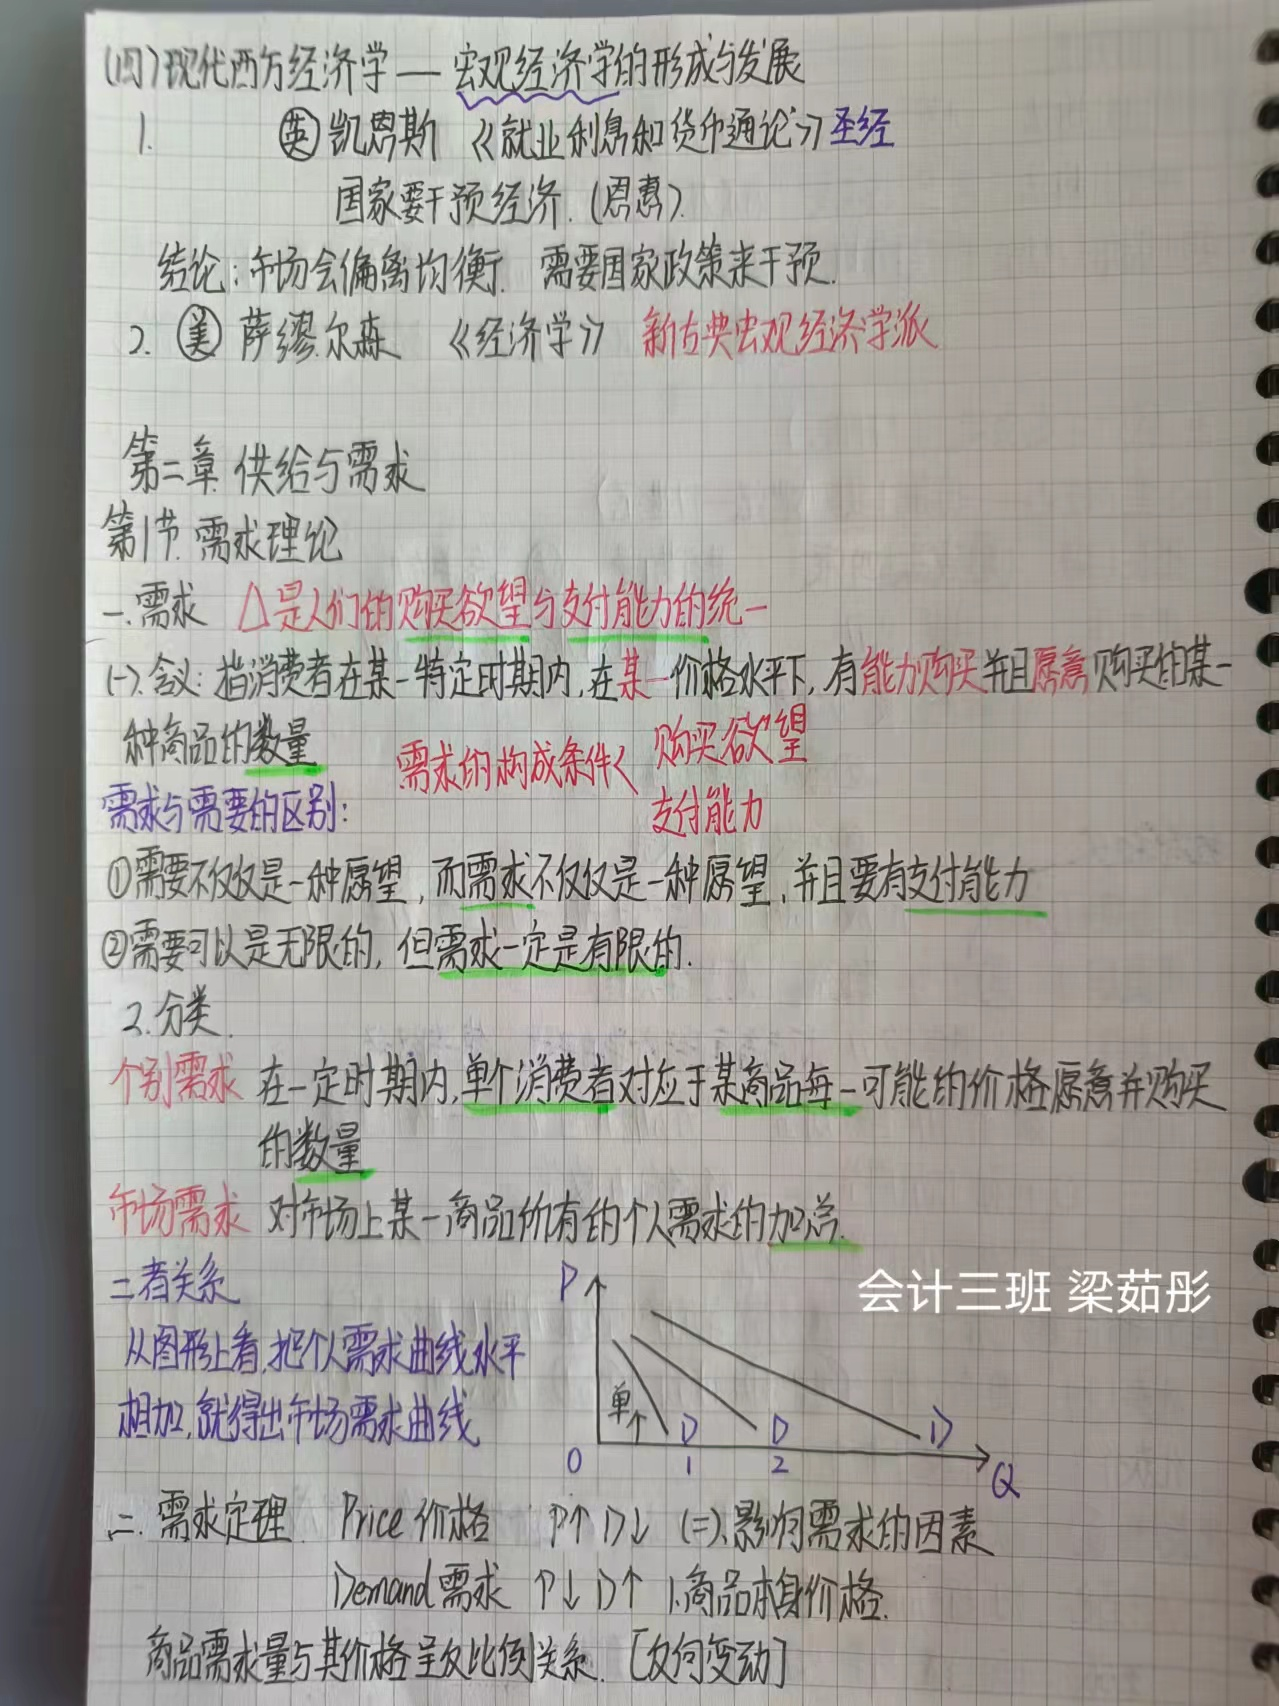 (四)现代西方经济学 — 宏观经济学的形成与发展
1. 英 凯恩斯 《就业利息和货币通论》圣经
国家要干预经济.(恩惠).
结论:市场会偏离均衡. 需要国家政策来干预.
2. 美 萨缪尔森 《经济学》 新古典宏观经济学派
第二章 供给与需求
第1节. 需求理论
一.需求 △是人们的购买欲望与支付能力的统一
(一).含义:指消费者在某一特定时期内,在某一价格水平下,有能力购买并且愿意购买的某一
种商品的数量 需求的构成条件< 购买欲望
支付能力
需求与需要的区别:
①需要不仅仅是一种愿望,而需求不仅仅是一种愿望,并且要有支付能力
②需要可以是无限的,但需求一定是有限的.
2.分类.
个别需求 在一定时期内,单个消费者对应于某商品每一可能的价格愿意并购买
的数量
市场需求 对市场上某一商品所有的个人需求的加总.
二者关系
从图形上看,把个人需求曲线水平
相加,就得出市场需求曲线
P
单↑ D D D
0 1 2 Q
会计三班 梁茹彤
二. 需求定理. Price 价格 P↑ D↓ (二).影响需求的因素
Demand 需求 P↓ D↑ 1.商品本身价格.
商品需求量与其价格呈反比例关系. [反向变动]